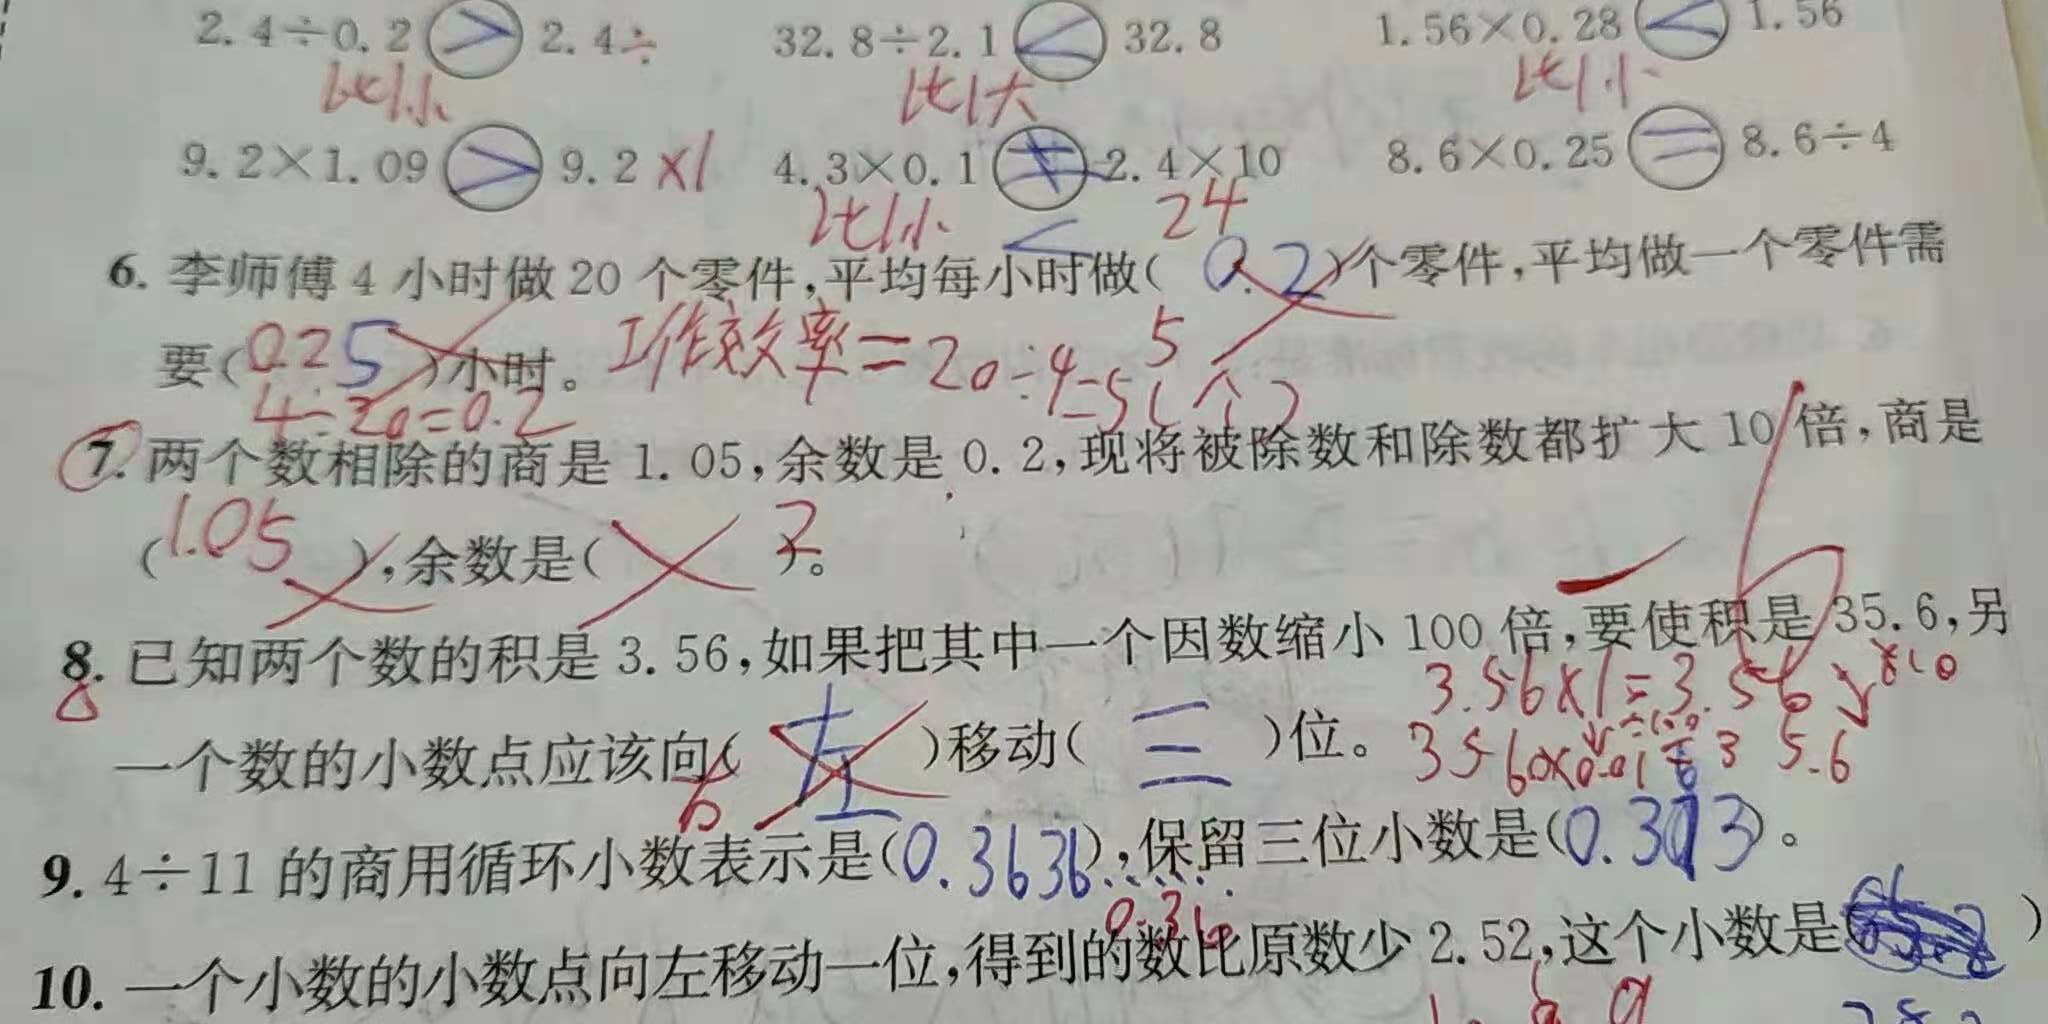 2.4÷0.2 > 2.4÷ 32.8÷2.1 < 32.8 1.56×0.28 < 1.56
比1小 比1大 比1小
9.2×1.09 > 9.2 ×1 4.3×0.1 2.4×10 8.6×0.25 = 8.6÷4
比1小 < 24
6. 李师傅4小时做20个零件,平均每小时做( 0.2 )个零件,平均做一个零件需
要(0.25)小时。 工作效率=20÷4=5(个) 5
4÷20=0.2
7. 两个数相除的商是1.05,余数是0.2,现将被除数和除数都扩大10倍,商是
(1.05),余数是( 2 )。
8. 已知两个数的积是3.56,如果把其中一个因数缩小100倍,要使积是35.6,另
3.56×1=3.56 ×10
一个数的小数点应该向( 左 )移动( 三 )位。 3560×0.01=35.6
÷100
9. 4÷11的商用循环小数表示是(0.3636……),保留三位小数是(0.3 3)。
0.36
10. 一个小数的小数点向左移动一位,得到的数比原数少2.52,这个小数是( )